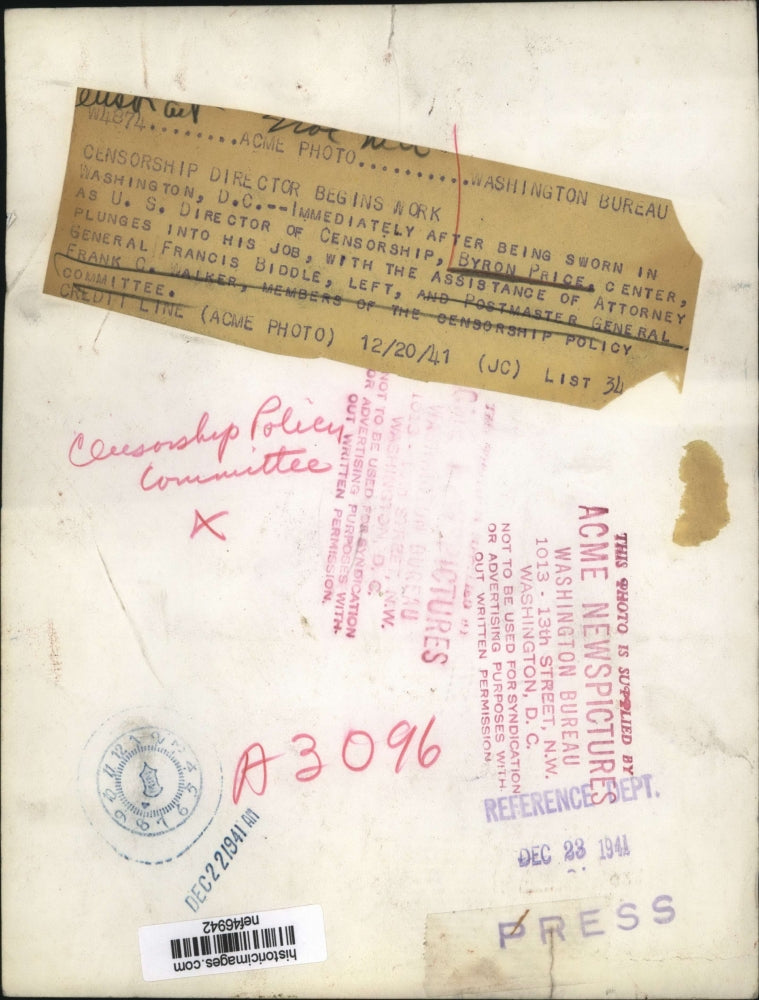 W4874........ACME PHOTO..........WASHINGTON BUREAU
CENSORSHIP DIRECTOR BEGINS WORK
WASHINGTON, D.C.--IMMEDIATELY AFTER BEING SWORN IN
AS U. S. DIRECTOR OF CENSORSHIP, BYRON PRICE, CENTER,
PLUNGES INTO HIS JOB, WITH THE ASSISTANCE OF ATTORNEY
GENERAL FRANCIS BIDDLE, LEFT, AND POSTMASTER GENERAL
FRANK C. WALKER, MEMBERS OF THE CENSORSHIP POLICY
COMMITTEE.
CREDIT LINE (ACME PHOTO) 12/20/41 (JC) LIST 34
Censorship Policy
Committee
X
NOT TO BE USED FOR SYNDICATION
OR ADVERTISING PURPOSES WITH-
OUT WRITTEN PERMISSION.
THIS PHOTO IS SUPPLIED BY
ACME NEWSPICTURES
WASHINGTON BUREAU
1013 - 13th STREET, N.W.
WASHINGTON, D. C.
NOT TO BE USED FOR SYNDICATION
OR ADVERTISING PURPOSES WITH-
OUT WRITTEN PERMISSION.
A3096
12 1 2 3 4 5 6 7 8 9 10 11
DEC 22 1941 AM
REFERENCE DEPT.
DEC 23 1941
PRESS
historicimages.com
nef46942